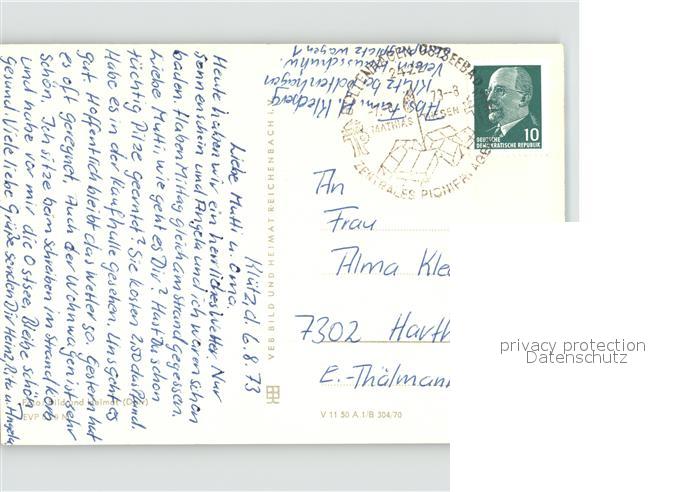 Klütz d. 6.8.73
Liebe Mutti u. Oma,
Heute haben wir ein herrliches Wetter. Nur
Sonnenschein und Angela und ich waren schon
baden. Haben Mittag gleich am Strand gegessen.
Liebe Mutti, wie geht es Dir? Hast Du schon
tüchtig Pilze geerntet? Sie kosten 2,50 das Pfund.
Habe es in der Kaufhalle gesehen. Uns geht es
gut. Hoffentlich bleibt das Wetter so. Gestern hat
es oft geregnet. Auch der Wohnwagen ist sehr
schön. Ich sitze beim schreiben im Strandkorb
und habe vor mir die Ostsee. Bleibe schön
gesund. Viele liebe Grüße senden Dir Heinz, Rita u. Angela
Abs. Fam. H. Kleeberg
Klütz bei Boltenhagen
Verein
Wagen 1
VEB BILD UND HEIMAT REICHENBACH i. V.
BOLTENHAGEN OSTSEEBAD
2422
-8
MATHIAS THESEN
ZENTRALES PIONIERLAGER
DEUTSCHE
DEMOKRATISCHE REPUBLIK
10
An
Frau
Alma Klee
7302 Harth
E.-Thälmann
Foto: Bild und Heimat
EVP
V 11 50 A 1/B 304/70
privacy protection
Datenschutz